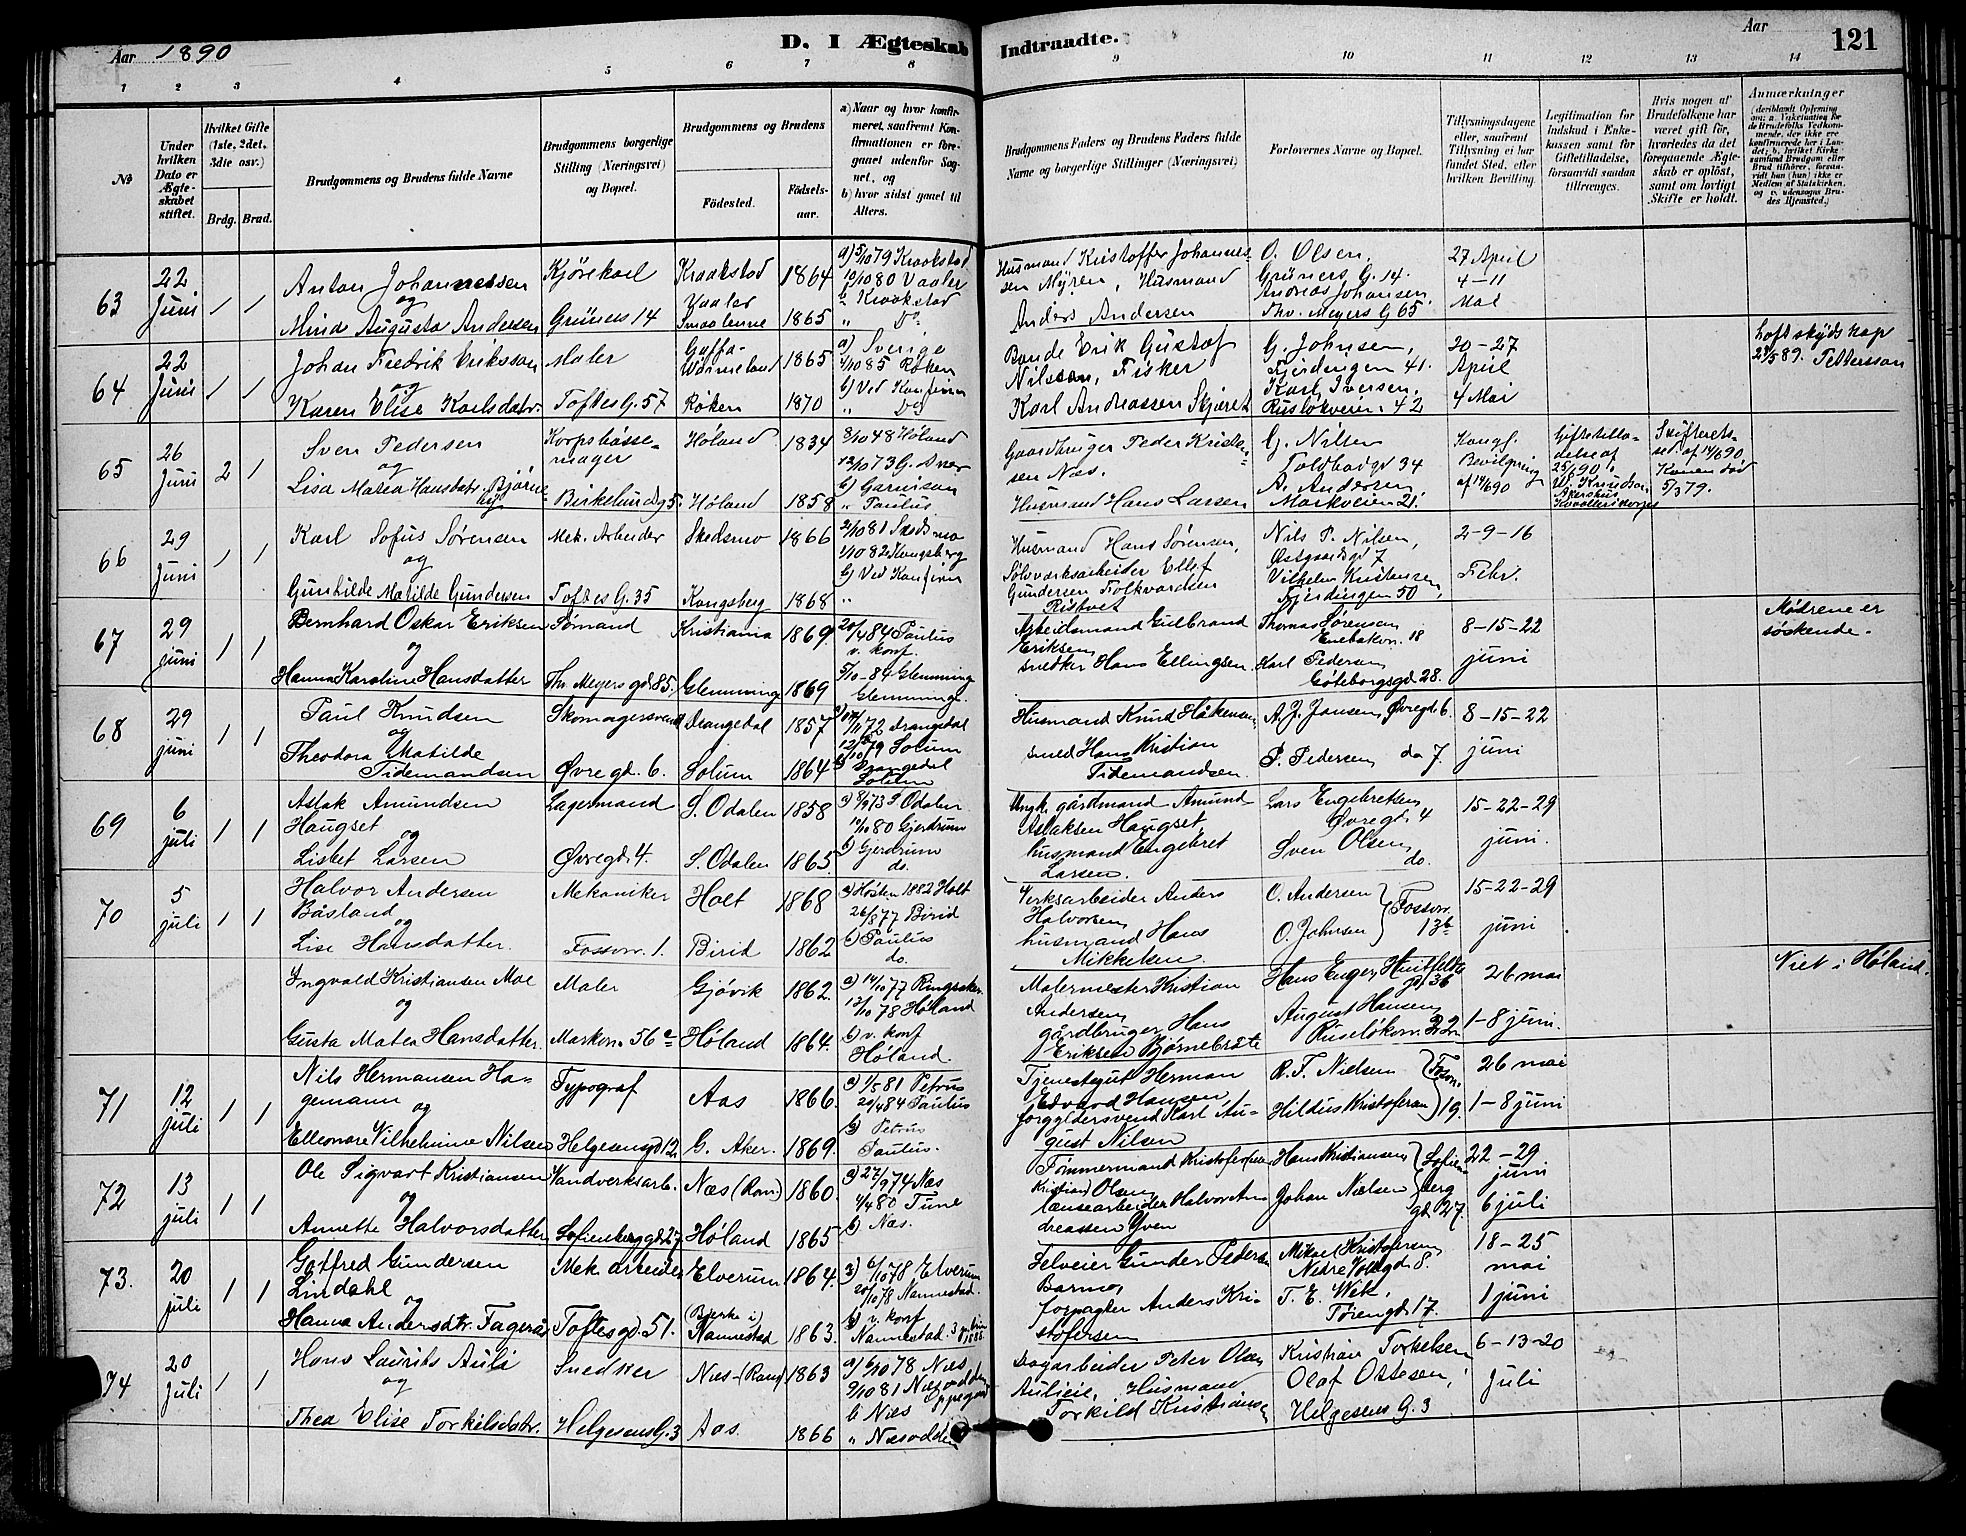 Aar 1890
D. I Ægteskab Indtraadte.
Aar
121
1 2 3 4 5 6 7 8 9 10 11 12 13 14
No
Under hvilken Dato er Ægteskabet stiftet.
Hvilket Gifte (1ste, 2det, 3die osv.)
Brdg. Brud.
Brudgommens og Brudens fulde Navne
Brudgommens borgerlige Stilling (Næringsvei) og Bopæl.
Brudgommens og Brudens
Fødested. Fødselsaar.
a) Naar og hvor konfirmeret, saafremt Konfirmationen er foregaaet udenfor Sognet, og
b) hvor sidst gaaet til Alters.
Brudgommens Faders og Brudens Faders fulde Navne og borgerlige Stillinger (Næringsvei)
Forlovernes Navne og Bopæl.
Tillysningsdagene eller, saafremt Tillysning ei har fundet Sted, efter hvilken Bevilling.
Legitimation for Indskud i Enkekassen samt for Giftetilladelse, forsaavidt saadan tiltrænges.
Hvis nogen af Brudefolkene har været gift før, hvorledes da det foregaaende Ægteskab er opløst, samt om lovligt Skifte er holdt.
Anmærkninger
63
22 Juni
1 1
Anton Johannessen
og
Mina Augusta Andersen
Kjørekarl
Grüners 14
Kraakstad 1864
Vaaler Smaalenene 1865
a) 5/10 79 Kraakstad
10/10 80 Vaaler
b Kraakstad
" Do
Husmand Kristoffer Johannessen Myren, Husmand
Anders Andersen
O. Olsen,
Grüners G. 14.
Andreas Johansen,
Thv. Meyers G 65
27 April
4–11
Mai
64
22 Juni
1 1
Johan Fredrik Eriksson
og
Karen Elise Karlsdatr.
Maler
Toftes G. 57
Wärmeland 1865
Røken 1870
a) Sverige
4/10 85 Røken
b) Ved Konfirm
" Do
Bonde Erik Gustaf
Nilsson, Fisker
Karl Andreassen Skjæret
G. Johnsen,
Fjerdingen 41.
Karl Iversen,
Ruseløkveien 42
20–27
April
4 Mai
Pettersson
65
26 Juni
2 1
Sven Pedersen
og
Lisa Matea Hansdatr.
Korpsbøssemager
Birkelundg 5.
Høland 1834
Høland 1858
8/10 48 Høland
b) Garnison
" Paulus
Gaardbruger Peder Kristensen Næs.
Husmand Hans Larsen
G. Nilsen
Toldbodgd 34
A. Andersen
Markveien 21.
Kongl.
Bevilgning
af 14/6 90
Giftetilladelse af
25/6 90
Akershus
Skifterets
af 14/6 90
Konen død
5/3 79.
66
29 Juni
1 1
Karl Sofus Sørensen
og
Gunhilde Matilde Gundersen
Mek. Arbeider
Toftes G. 35
Skedsmo 1866
Kongsberg 1868
2/10 81 Skedsmo
1/10 82 Kongsberg
b) Ved Konfirm
"
Husmand Hans Sørensen,
Sølvværksarbeider Ellef
Gundersen Folkvordsen
Nils P. Nilsen,
Østgaardsgd 7
Vilhelm Kristensen,
Fjerdingen 50
2–9–16
Febr.
67
29 juni
1 1
Bernhard Oskar Eriksen
og
Hanna Karoline Hansdatter
Sømand
Th. Meyers gd 85.
Kristiania 1869
Glemminge 1869
20/4 84 Paulus
v. konf.
5/10–84 Glemminge
Glemminge.
Arbeidsmand Gulbrand
Eriksen
snedker Hans Ellingsen
Thomas Sørensen
Enebakvn. 18
Karl Pedersen
Göteborgsgd 28.
8–15–22
juni
Mødrene er
søskende.
68
29 juni
1 1
Paul Knudsen
og
Theodora Matilde
Tidemandsen
Skomagersvend
Øvre gd. 6.
Drangedal 1857
Solum 1864
72 Drangedal
79 Solum
b) Drangedal
Solum
Husmand Knud Håkensen
smed Hans Kristian
Tidemandsen.
A. J. Jansen, Øvregd. 6.
P. Pedersen do 7.
8–15–22
juni
69
6 juli
1 1
Aslak Amundsen
Haugset
og
Lisbet Larsen
Lagermand
Øvregd. 4.
S. Odalen 1858
S. Odalen 1865
a) 8/9 73 S Odalen
10/10 80 Gjerdrum
b) Gjerdrum
do.
Ungk. gårdmand Amund
Aslaksen Haugset,
husmand Engebret
Larsen.
Lars Engebretsen
Øvregd. 4
Sven Olsen
do.
15–22–29
juni.
70
5 juli
1 1
Halvor Andersen
Båsland
og
Lise Hansdatter.
Mekaniker
Fossvn. 1.
Holt 1868
Birid 1862
a) Høsten 1882 Holt
26/8 77 Birid
b) Paulus
do.
Verksarbeider Anders
Halvorsen
husmand Hans
Mikkelsen.
O. Andersen
O. Johnsen
Fossvn. 13b
15–22–29
juni
Ingvald Kristiansen Moe
og
Gusta Matea Hansdatter.
Maler
Markvn. 56c
Gjøvik 1862.
Høland 1864.
a) 14/10 77 Ringsaker
13/10 78 Høland
b) v. konf
Høland.
Malermester Kristian
Andersen
gårdbruger Hans
Eriksen Bjørnebråte
Hans Enger, Huitfeldts gd. 36
August Hansen
Ruseløkvn. 22
26 mai
1–8 juni.
Viet i Høland.
71
12 juli
1 1
Nils Hermansen Hagemann
og
Elleonore Vilhelmine Nilsen
Typograf
Helgesensgd 12
Aas 1866.
G. Aker. 1869.
a) 1/5 81 Petrus
20/4 84 Paulus
b) Petrus
Paulus.
Tjenestegut Herman
Edvard Hansen
forgyldersvend Karl August Nilsen
R. F. Nielsen
Hildus Kristofersen
Fossvn. 19.
26 mai
1–8 juni
72
13 juli
1 1
Ole Sigvart Kristiansen
og
Annette Halvorsdatter
Vandverksarb.
Sofienberggd 27
Næs (Rom) 1860.
Høland 1865
a) 27/9 74 Næs
4/4 80 Tune
b) Næs.
Tømmermand Kristofer
Kristian Olsen
lænsearbeider Halvor Andreassen Yven
Hans Kristiansen
Johan Nielsen
Sofienberg gd 27.
22–29
juni
6 juli
73.
20 juli
1 1
Gotfred Gundersen
Lindahl
og
Hanna Andersdtr. Fagerås
Mek. arbeider
Toftesgd. 51.
Elverum 1864.
(Bjerke i) Nannestad 1863.
a) 6/10 78 Elverum
20/10 78 Nannestad.
b) v. konf
Nannestad.
Selveier Gunder Pedersen
Barmo
forpagter Anders Kristofersen
Mikael Kristofersen
Nedre Voldgd. 8.
T. E. Wik,
Tøiengd 17.
18–25
mai
1 juni
74
20 Juli
1 1
Hans Laurits Auli
og
Thea Elise Torkelsdatr.
Snedker
Helgesens G. 3
Næs (Rom) 1863
Aas. 1866
a) 6/10 78 Næs
9/10 81 Næsodden
Oppegaard
b Næs
" Næsodden
Dagarbeider Peter Olsen
Aulieie, Husmand
Torkild Kristiansen
Kristian Torkelsen
Olaf Ottesen,
Helgesens G. 3
6–13–20
Juli